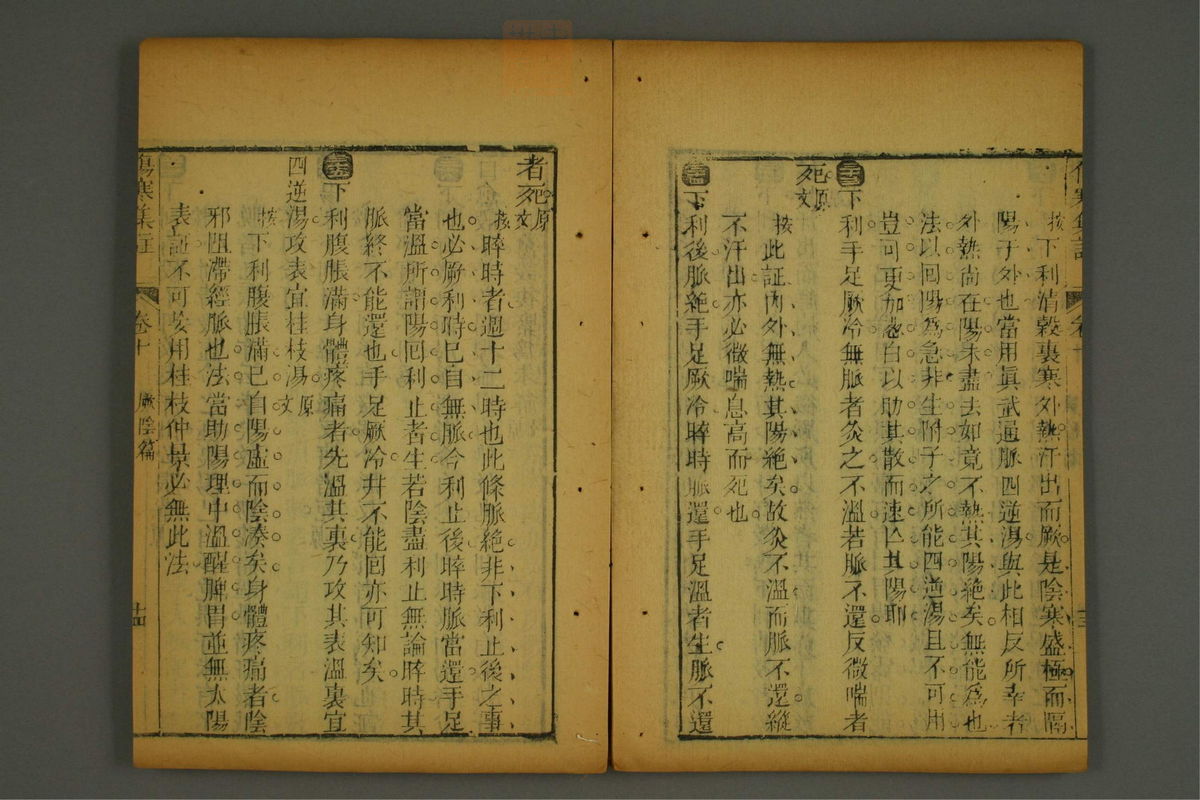 傷寒集註
卷十
十三
按下利清穀裏寒外熱汗出而厥是陰寒盛極而隔
陽于外也當用眞武通脈四逆湯與此相反所幸者
外熱尚在陽未盡去如竟不熱其陽絶矣無能爲也
法以回陽爲急非生附子之所能四逆湯且不可用
豈可更加葱白以助其散而速亡其陽耶
下利手足厥冷無脈者灸之不溫若脈不還反微喘者
死原文
按此証內外無熱其陽絶矣故灸不溫而脈不還縱
不汗出亦必微喘息高而死也
下利後脈絶手足厥冷晬時脈還手足溫者生脈不還
者死原文
按晬時者週十二時也此條脈絶非下利止後之事
也必厥利時已自無脈今利止後晬時脈當還手足
當溫所謂陽回利止者生若陰盡利止無論晬時其
脈終不能還也手足厥冷幷不能回亦可知矣
下利腹脹滿身體疼痛者先溫其裏乃攻其表溫裏宜
四逆湯攻表宜桂枝湯原文
按下利腹脹滿已自陽虛而陰湊矣身體疼痛者陰
邪阻滯經脈也法當助陽理中溫醒脾胃並無太陽
表証不可妄用桂枝仲景必無此法
傷寒集註
卷十
厥陰篇
十四